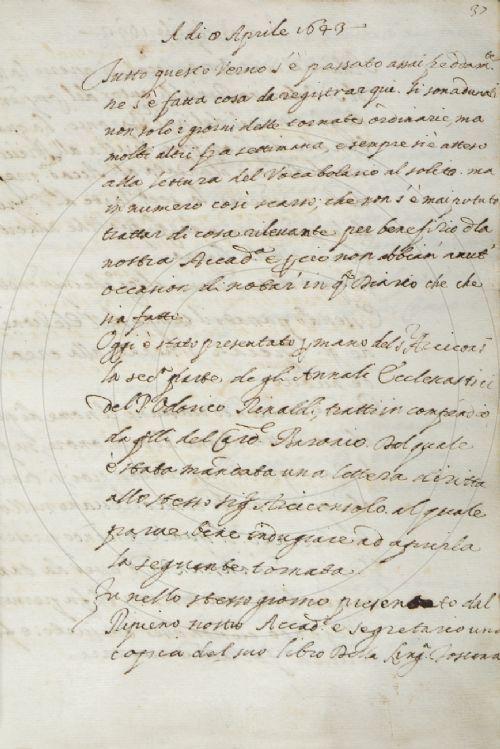 37
A di 8 Aprile 1643
Tutto questo Verno s'è passato assai
ne s'è fatta cosa da registrar qui. Si son adunati
non solo i giorni delle tornate ordinarie, ma
molti altri fra settimana, e sempre si è atteso
alla lettura del Vocabolario al solito. ma
in numero così scarso, che non s'è mai potuto
trattar di cosa rilevante per benefizio d'la
nostra Accad.ª e p ciò non abbiam avut'
occasion di notar' in q.º Diario che che
sia fatto.
Oggi è stato presentato p mano del S.
la sec.ª parte de gli Annali Ecclesiastici
del P. Odorico Rinaldi, tratto in compendio
da q̃lli del Car.le Baronio. Dal quale
è stata mandata una lettera diritta
allo stesso Sig.r Arciconsolo, al quale
parve bene indugiare ad aprirla
la seguente tornata.
Fu nello stesso giorno presentato dal
Ripieno nostro Accad.º e segretario una
copia del suo libro Della Ling.ª Toscana